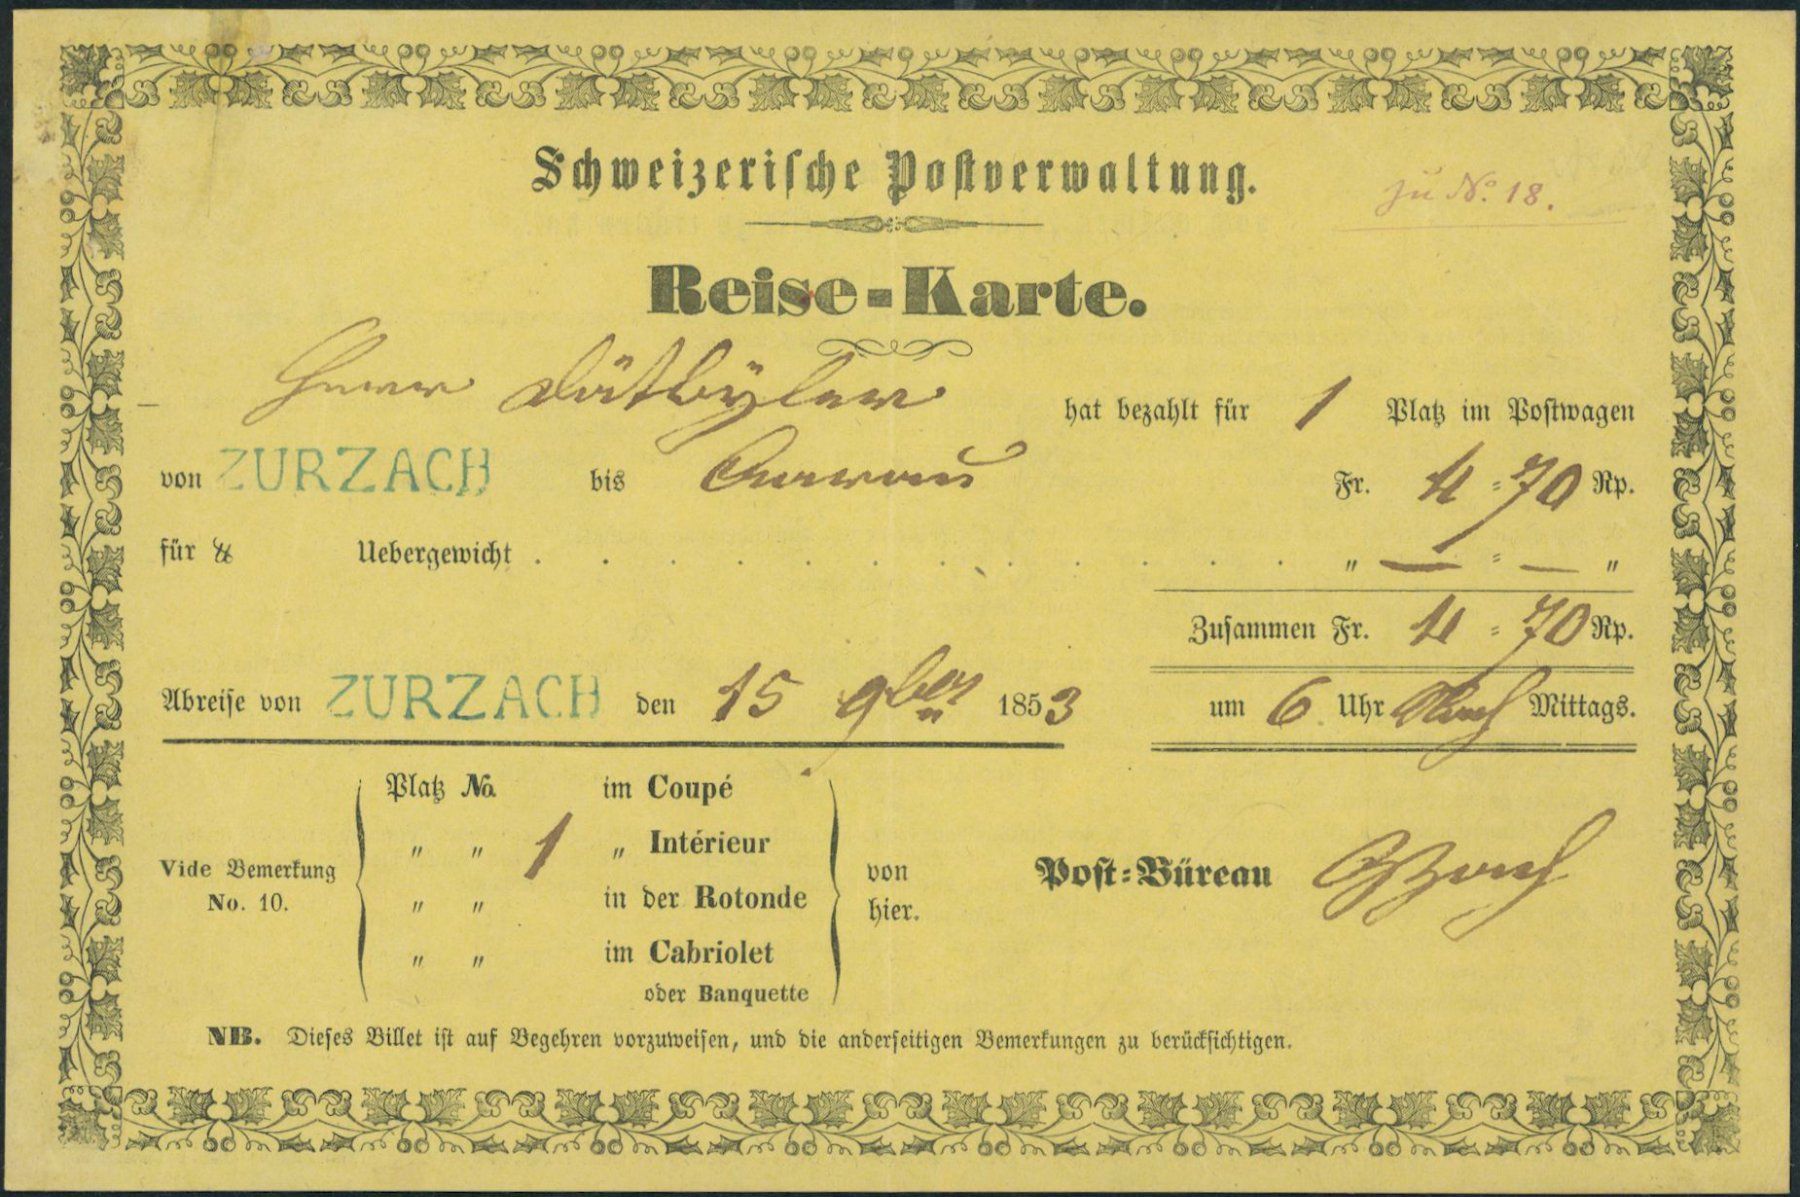 Schweizerische Postverwaltung.
zu No. 18.
Reise-Karte.
Herr Dätwyler hat bezahlt für 1 Platz im Postwagen
von ZURZACH bis Aarau Fr. 4 = 70 Rp.
für ℔ Uebergewicht . . . . . . . . . . . . „ — = — „
Zusammen Fr. 4 = 70 Rp.
Abreise von ZURZACH den 15 9ber 1853 um 6 Uhr Nach Mittags.
Platz No. im Coupé
„ „ 1 „ Intérieur
Vide Bemerkung No. 10.
„ „ in der Rotonde
„ „ im Cabriolet
oder Banquette
von hier.
Post-Büreau
NB. Dieses Billet ist auf Begehren vorzuweisen, und die anderseitigen Bemerkungen zu berücksichtigen.